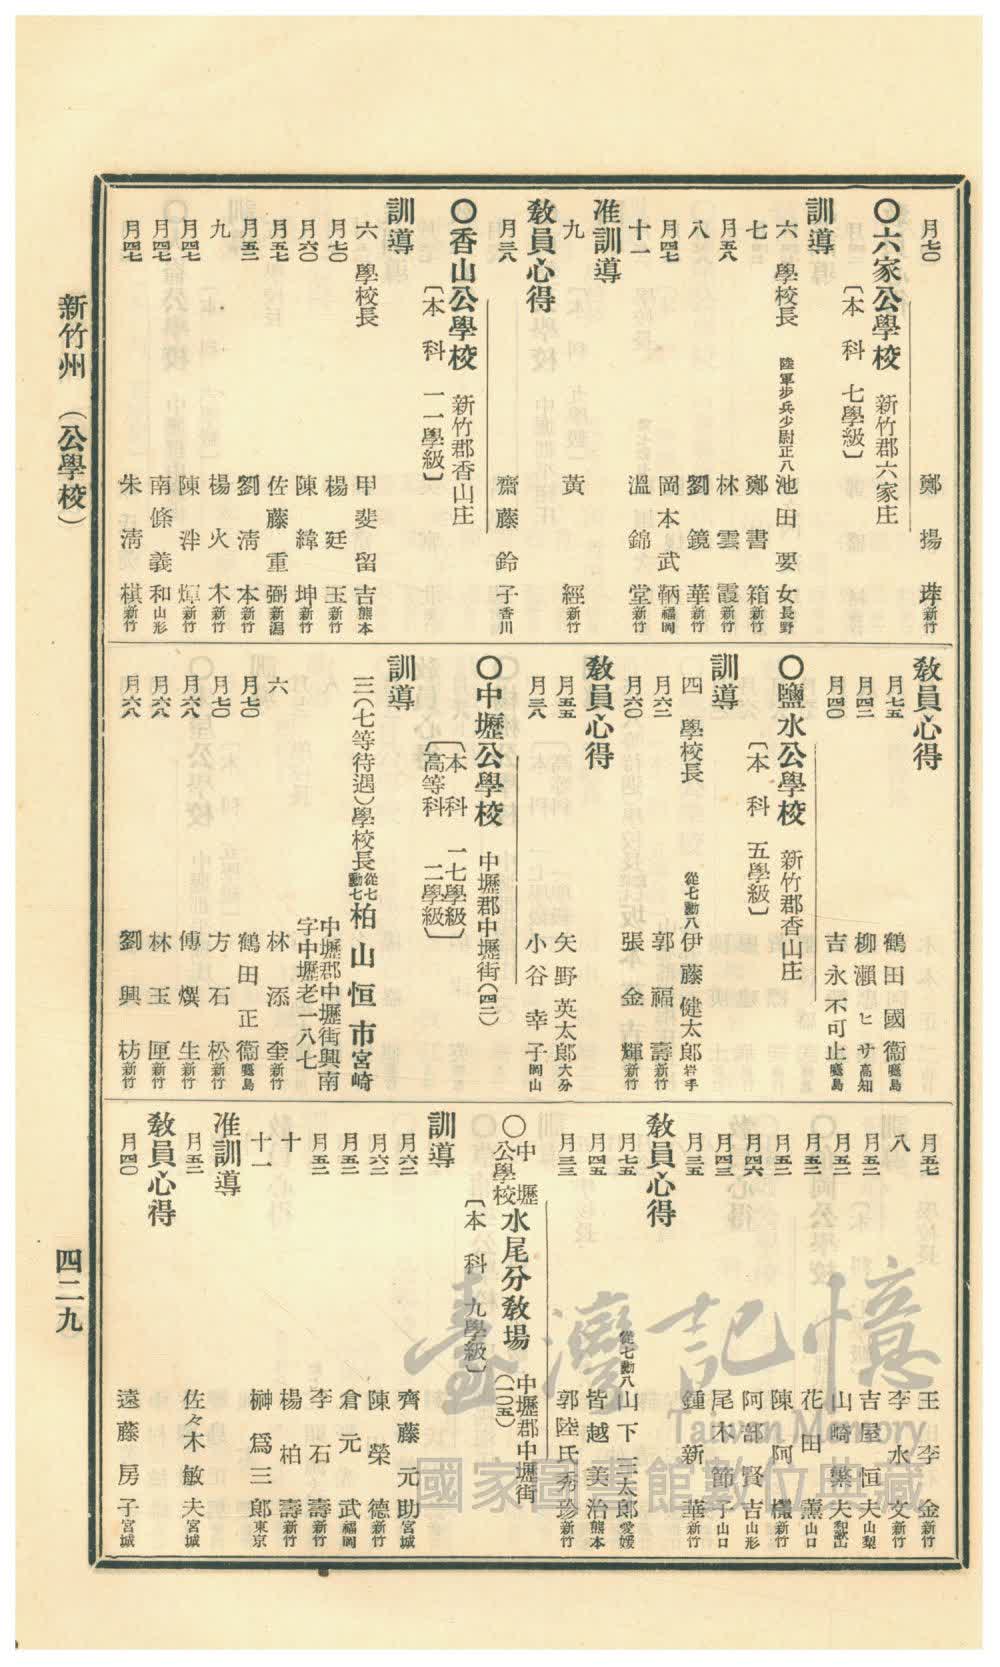 月七〇 鄭揚 新竹
〇六家公學校 新竹郡六家庄
〔本科 七學級〕
訓導
六 學校長 陸軍步兵少尉正八 池田要女 長野
七 鄭書箱 新竹
月五八 林雲霞 新竹
八 劉鏡華 新竹
月四七 岡本武鞆 福岡
十一 溫錦堂 新竹
准訓導
九 黃經 新竹
教員心得
月三八 齋藤鈴子 香川
〇香山公學校 新竹郡香山庄
〔本科 一一學級〕
訓導
六 學校長 甲斐留吉 熊本
月七〇 楊廷玉 新竹
月六〇 陳緯坤 新竹
月五七 佐藤重弼 新潟
月五二 劉清本 新竹
九 楊火木 新竹
月四七 陳泮煇 新竹
月四七 南條義和 山形
月四七 朱清棋 新竹
教員心得
月七五 鶴田國衞 鹿兒島
月四二 柳瀨ヒサ 高知
月四〇 吉永不可止 鹿兒島
〇鹽水公學校 新竹郡香山庄
〔本科 五學級〕
訓導
四 學校長 從七勳八 伊藤健太郎 岩手
月六二 郭福壽 新竹
月六〇 張金輝 新竹
教員心得
月五五 矢野英太郎 大分
月三八 小谷幸子 岡山
〇中壢公學校 中壢郡中壢街(四二)
〔本科 一七學級〕
〔高等科 二學級〕
訓導
三(七等待遇)學校長 從七勳七 柏山恒市 宮崎
中壢郡中壢街興南
字中壢老一八七
六 林添奎 新竹
月七〇 鶴田正衞 鹿兒島
月七〇 方石松 新竹
月六八 傅熼生 新竹
月六八 林玉厘 新竹
月六八 劉興枋 新竹
月五七 王李金 新竹
八 李水文 新竹
月五二 吉屋恒夫 山梨
月五二 山崎繁夫 和歌山
月五二 花田薰 山口
月五二 陳阿 新竹
月四六 阿部賢吉 山形
月四三 尾木節子 山口
月三五 鍾新華 新竹
教員心得
月七五 從七勳八 山下三太郎 愛媛
月四五 皆越美治 熊本
月三三 郭陸氏秀珍 新竹
〇中壢公學校 水尾分教場 中壢郡中壢街(一〇五)
〔本科 九學級〕
訓導
月六二 齊藤元助 宮城
月六二 陳榮德 新竹
月五二 倉元武 福岡
月五二 李石壽 新竹
十 楊柏壽 新竹
十一 榊爲三郎 東京
准訓導
月五二 佐々木敏夫 宮城
教員心得
月四〇 遠藤房子 宮城
新竹州 (公學校)
四二九
臺灣記憶
Taiwan Memory
國家圖書館數位典藏